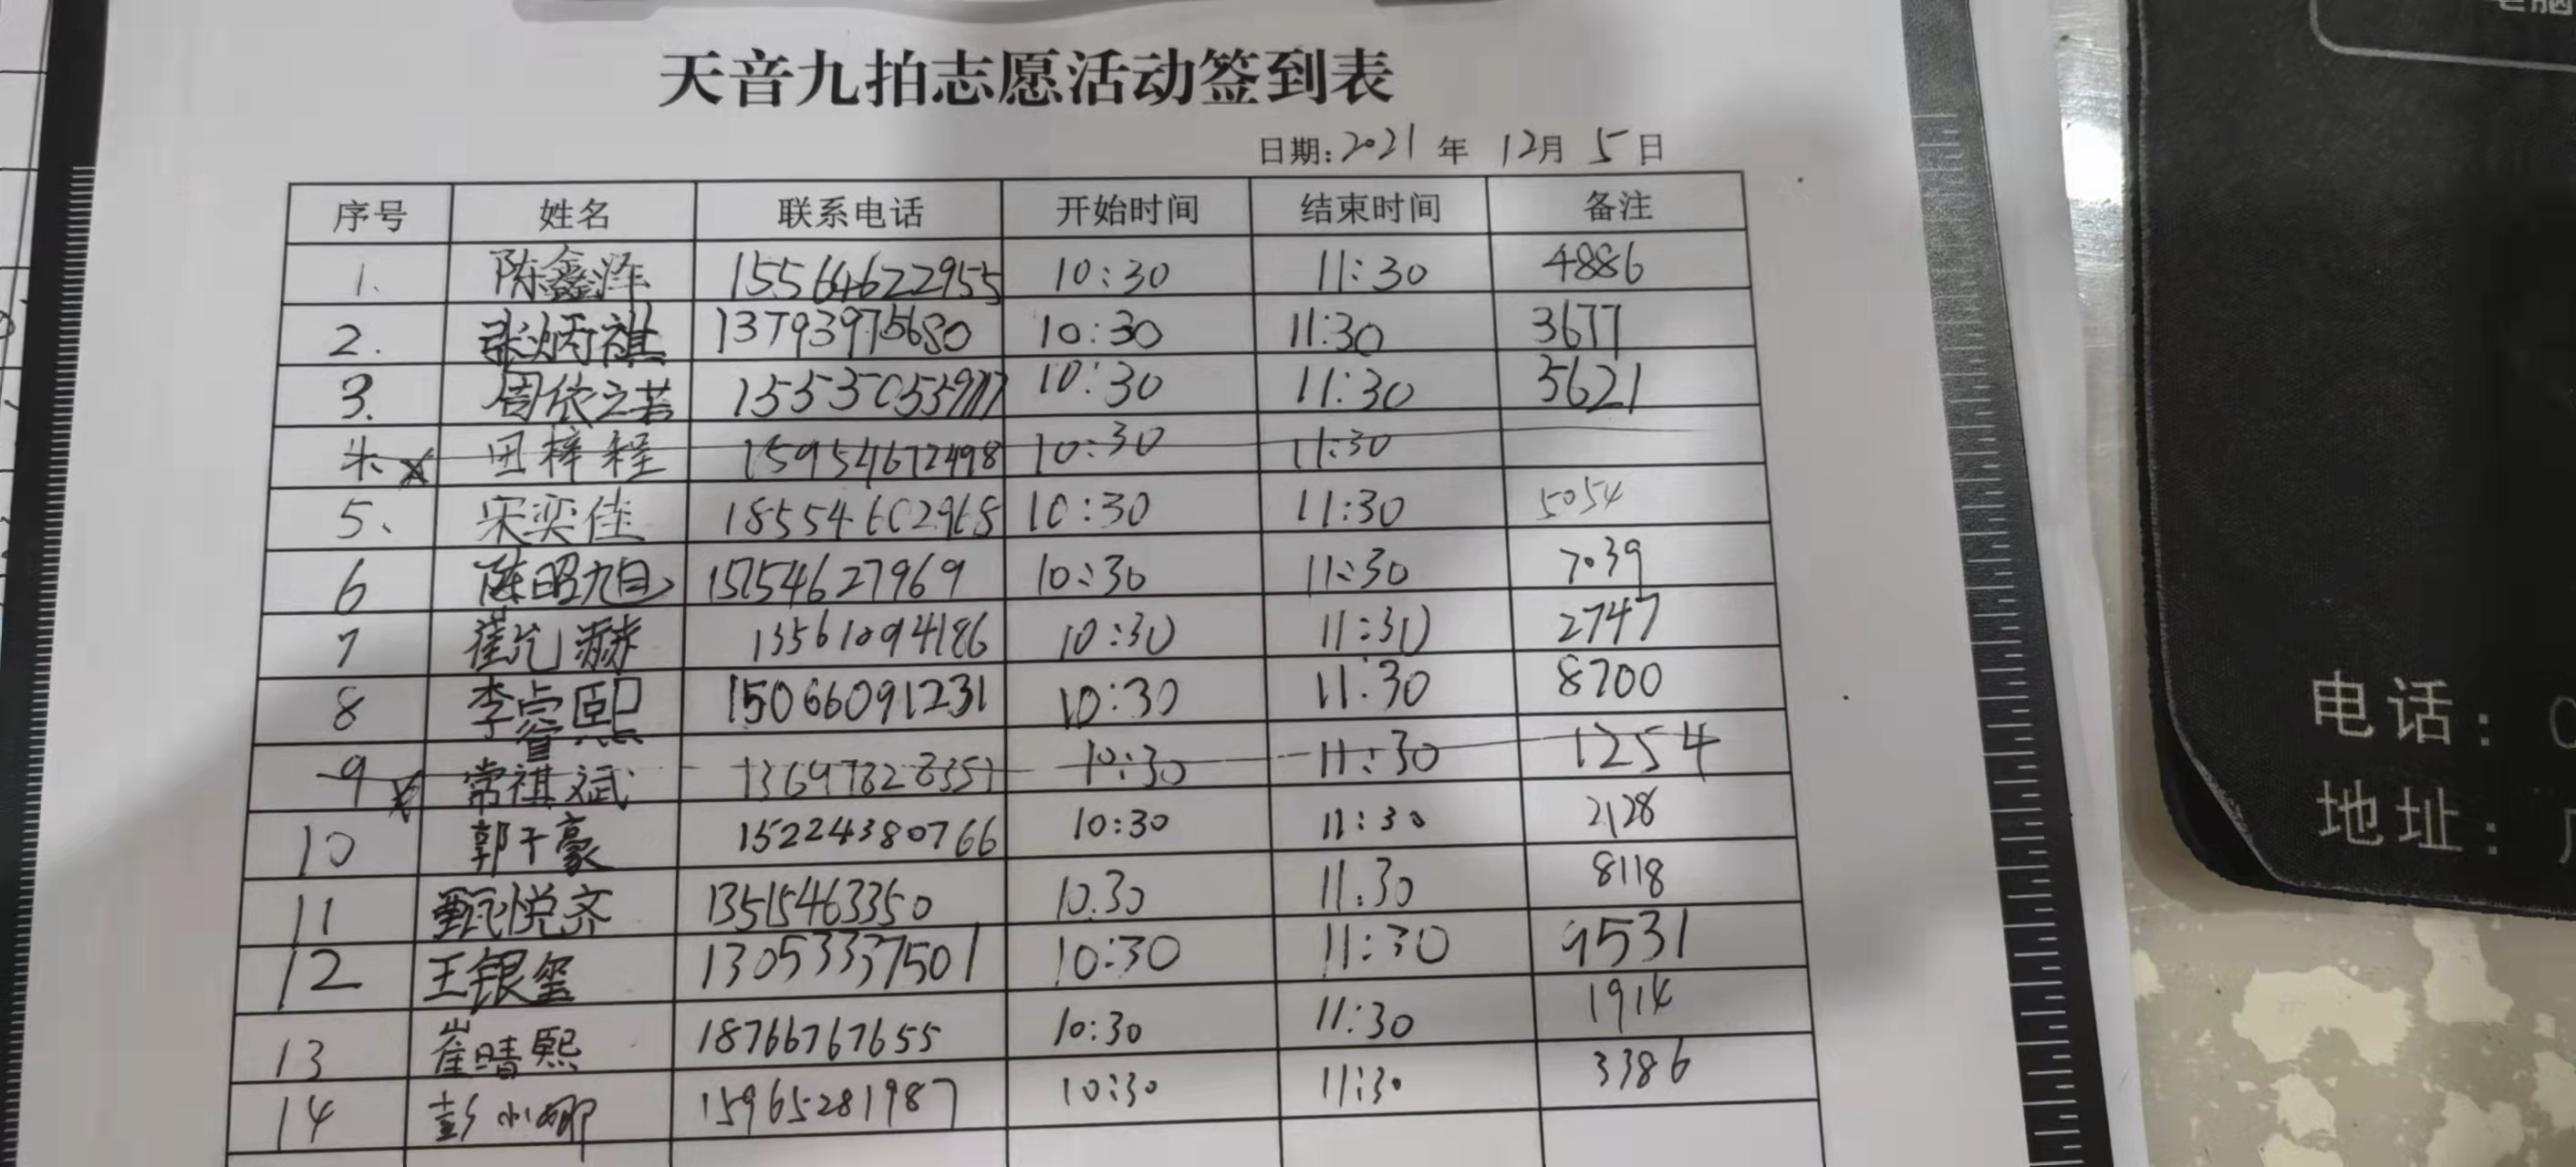 天音九拍志愿活动签到表
日期:2021年 12月 5日
序号 姓名 联系电话 开始时间 结束时间 备注
1. 陈鑫泽 15564622955 10:30 11:30 4886
2. 张炳祺 13793975680 10:30 11:30 3677
3. 周依之若 10:30 11:30 5621
4. 田梓程 15954672498 10:30 11:30
5、 宋奕佳 18554602968 10:30 11:30 5054
6 陈昭旭 15754627969 10:30 11:30 7039
7 崔允赫 13561094186 10:30 11:30 2747
8 李睿熙 15066091231 10:30 11:30 8700
9 常祺斌 10:30 11:30 1254
10 郭千豪 15224380766 10:30 11:30 2128
11 甄悦齐 13515463350 10.30 11.30 8118
12 王银玺 13053337501 10:30 11:30 9531
13 崔晴熙 18766767655 10:30 11:30 1914
14 彭小娜 15965281987 10:30 11:30 3386
电话:
地址: